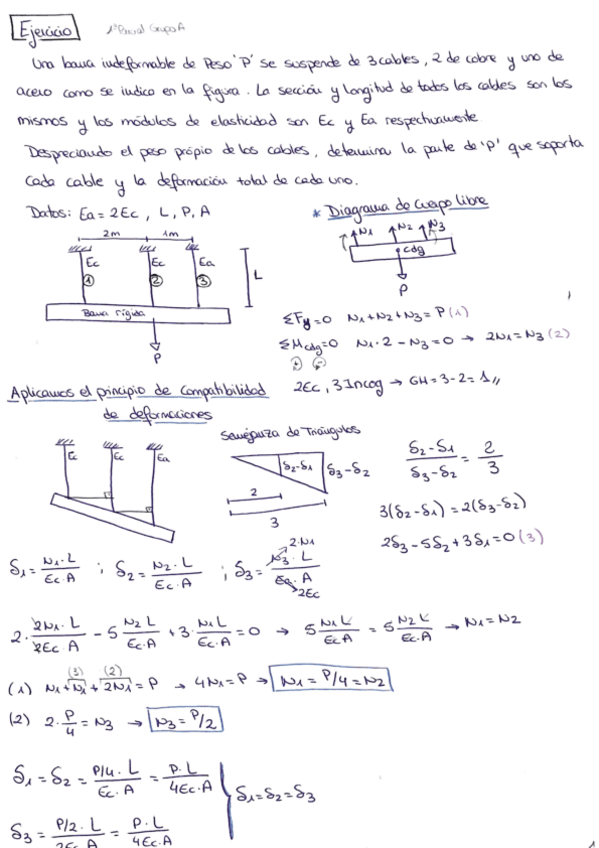 Ejercicio 1º Parcial Grupo A
Una barra indeformable de Peso 'P' se suspende de 3 cables, 2 de cobre y uno de
acero como se indica en la figura. La sección y longitud de todos los cables son los
mismos y los módulos de elasticidad son Ec y Ea respectivamente.
Despreciando el peso própio de los cables, determina la parte de 'P' que soporta
cada cable y la deformación total de cada uno.
Datos: Ea = 2Ec, L, P, A
* Diagrama de cuerpo libre
2m 1m
Ec Ec Ea
1 2 3
L
Barra rígida
P
N1 N2 N3
cdg
P
ΣFy=0 N1+N2+N3=P (1)
ΣMcdg=0 N1·2-N3=0 → 2N1=N3 (2)
+ -
2Ec, 3Incog → GH=3-2=1,,
Aplicamos el principio de Compatibilidad
de deformaciones
Ec Ec Ea
Semejanza de Triángulos
δ2-δ1 δ3-δ2
2
3
(δ2-δ1)/(δ3-δ2) = 2/3
3(δ2-δ1)=2(δ3-δ2)
2δ3-5δ2+3δ1=0 (3)
δ1 = N1·L/Ec·A ; δ2 = N2·L/Ec·A ; δ3 = N3·L/Ea·A
2·N1
2Ec
2· 2N1·L/2Ec·A - 5 N2 L/Ec·A + 3· N1 L/Ec·A = 0 → 5 N1 L/Ec A = 5 N2 L/Ec·A → N1=N2
(3) (2)
(1) N1+N1+2N1=P → 4N1=P → N1=P/4=N2
(2) 2·P/4=N3 → N3=P/2
δ1=δ2= P/4·L/Ec·A = P·L/4Ec·A
δ1=δ2=δ3
δ3= P/2·L/2Ec A = P·L/4Ec·A
1